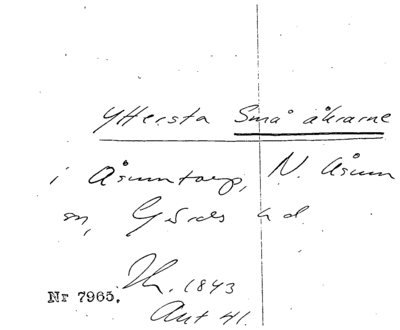 Yttersta Små åkrarne
i Åsumtorp, N. Åsum
sn, Gärds hd.
1843
Nr 7965. Akt 41.